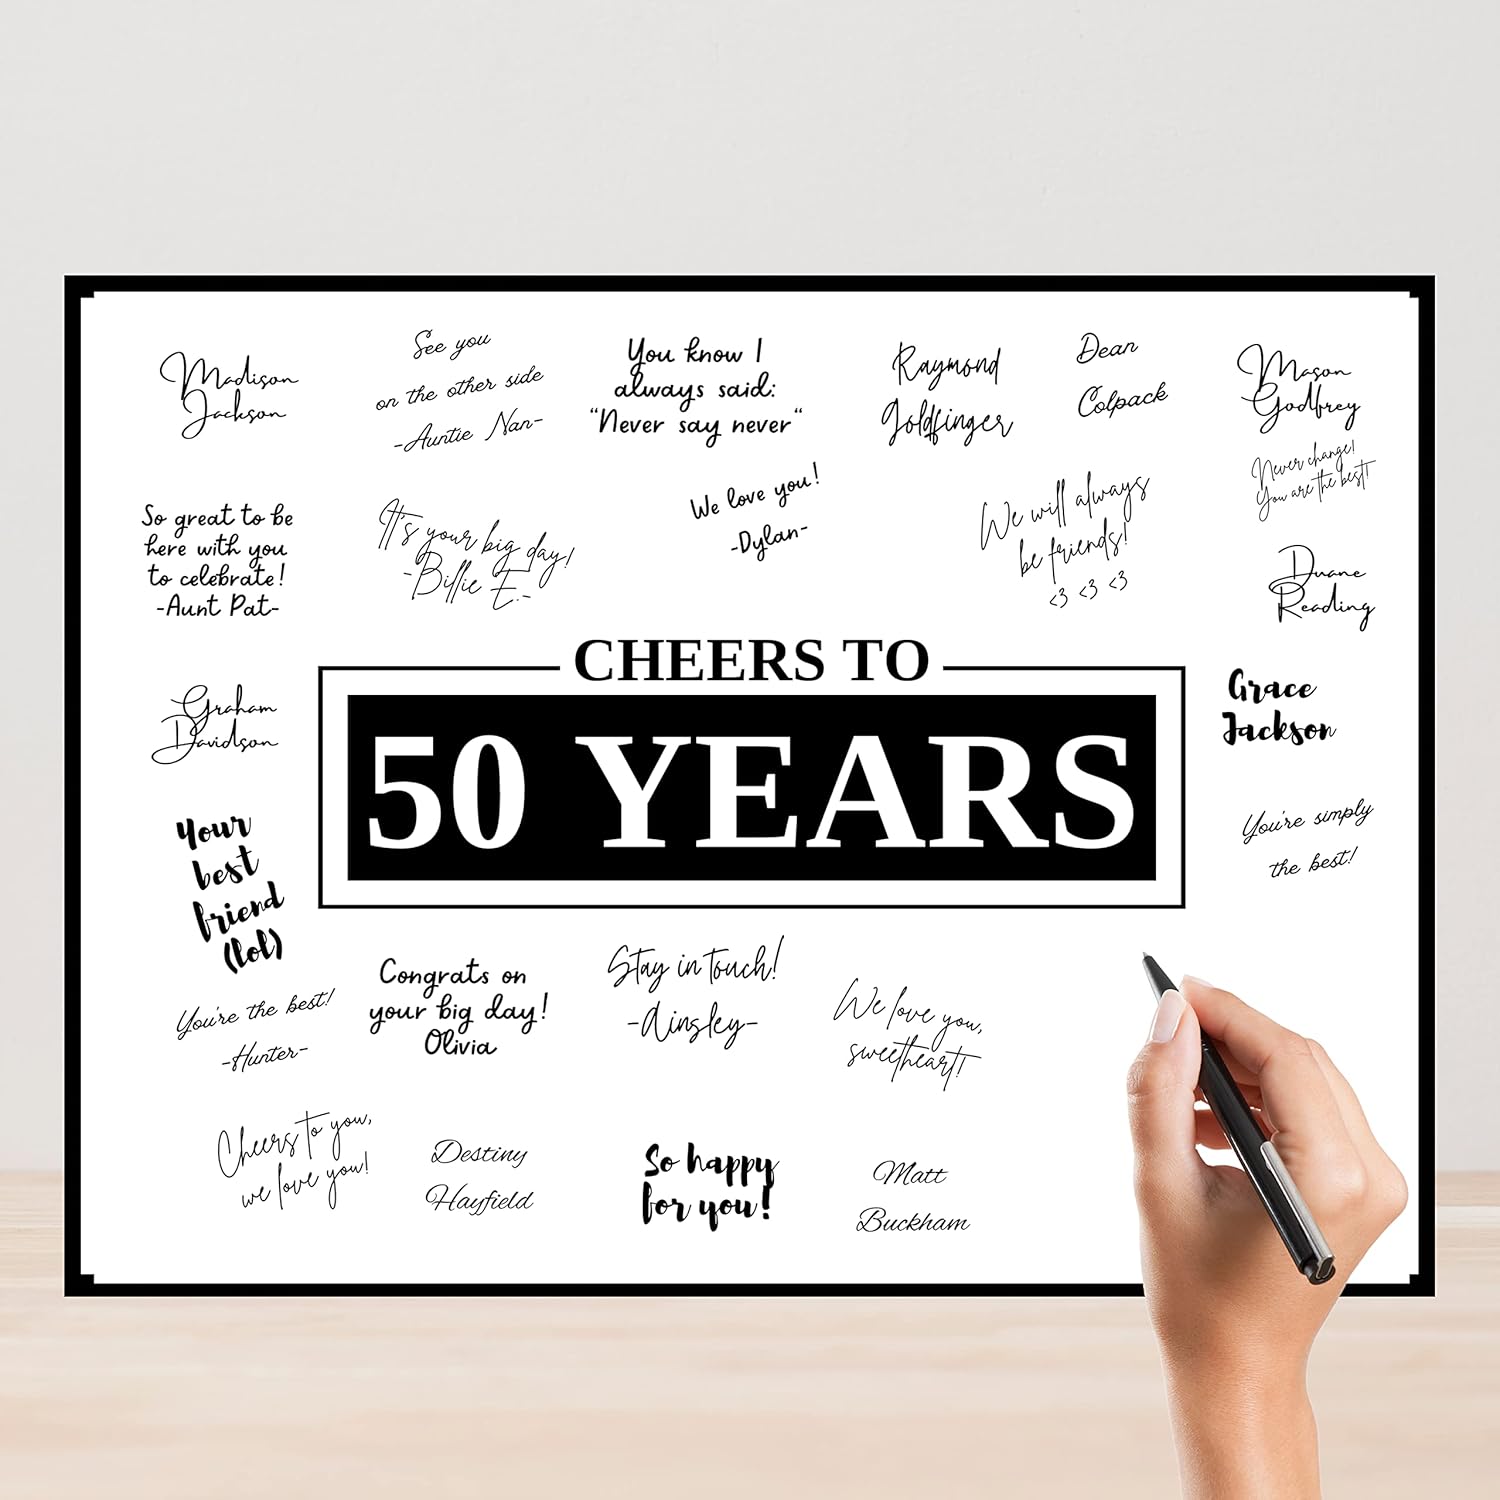 Madison
Jackson
See you
on the other side
-Auntie Nan-
You know I
always said:
"Never say never"
Raymond
Goldfinger
Dean
Colpack
Mason
Godfrey
Never change!
You are the best!
So great to be
here with you
to celebrate!
-Aunt Pat-
It's your big day!
-Billie E.-
We love you!
-Dylan-
We will always
be friends!
<3 <3 <3
Duane
Reading
Graham
Davidson
CHEERS TO
50 YEARS
Grace
Jackson
Your
best
friend
(lol)
You're simply
the best!
You're the best!
-Hunter-
Congrats on
your big day!
Olivia
Stay in touch!
-Ainsley-
We love you,
sweetheart!
Cheers to you,
we love you!
Destiny
Hayfield
So happy
for you!
Matt
Buckham